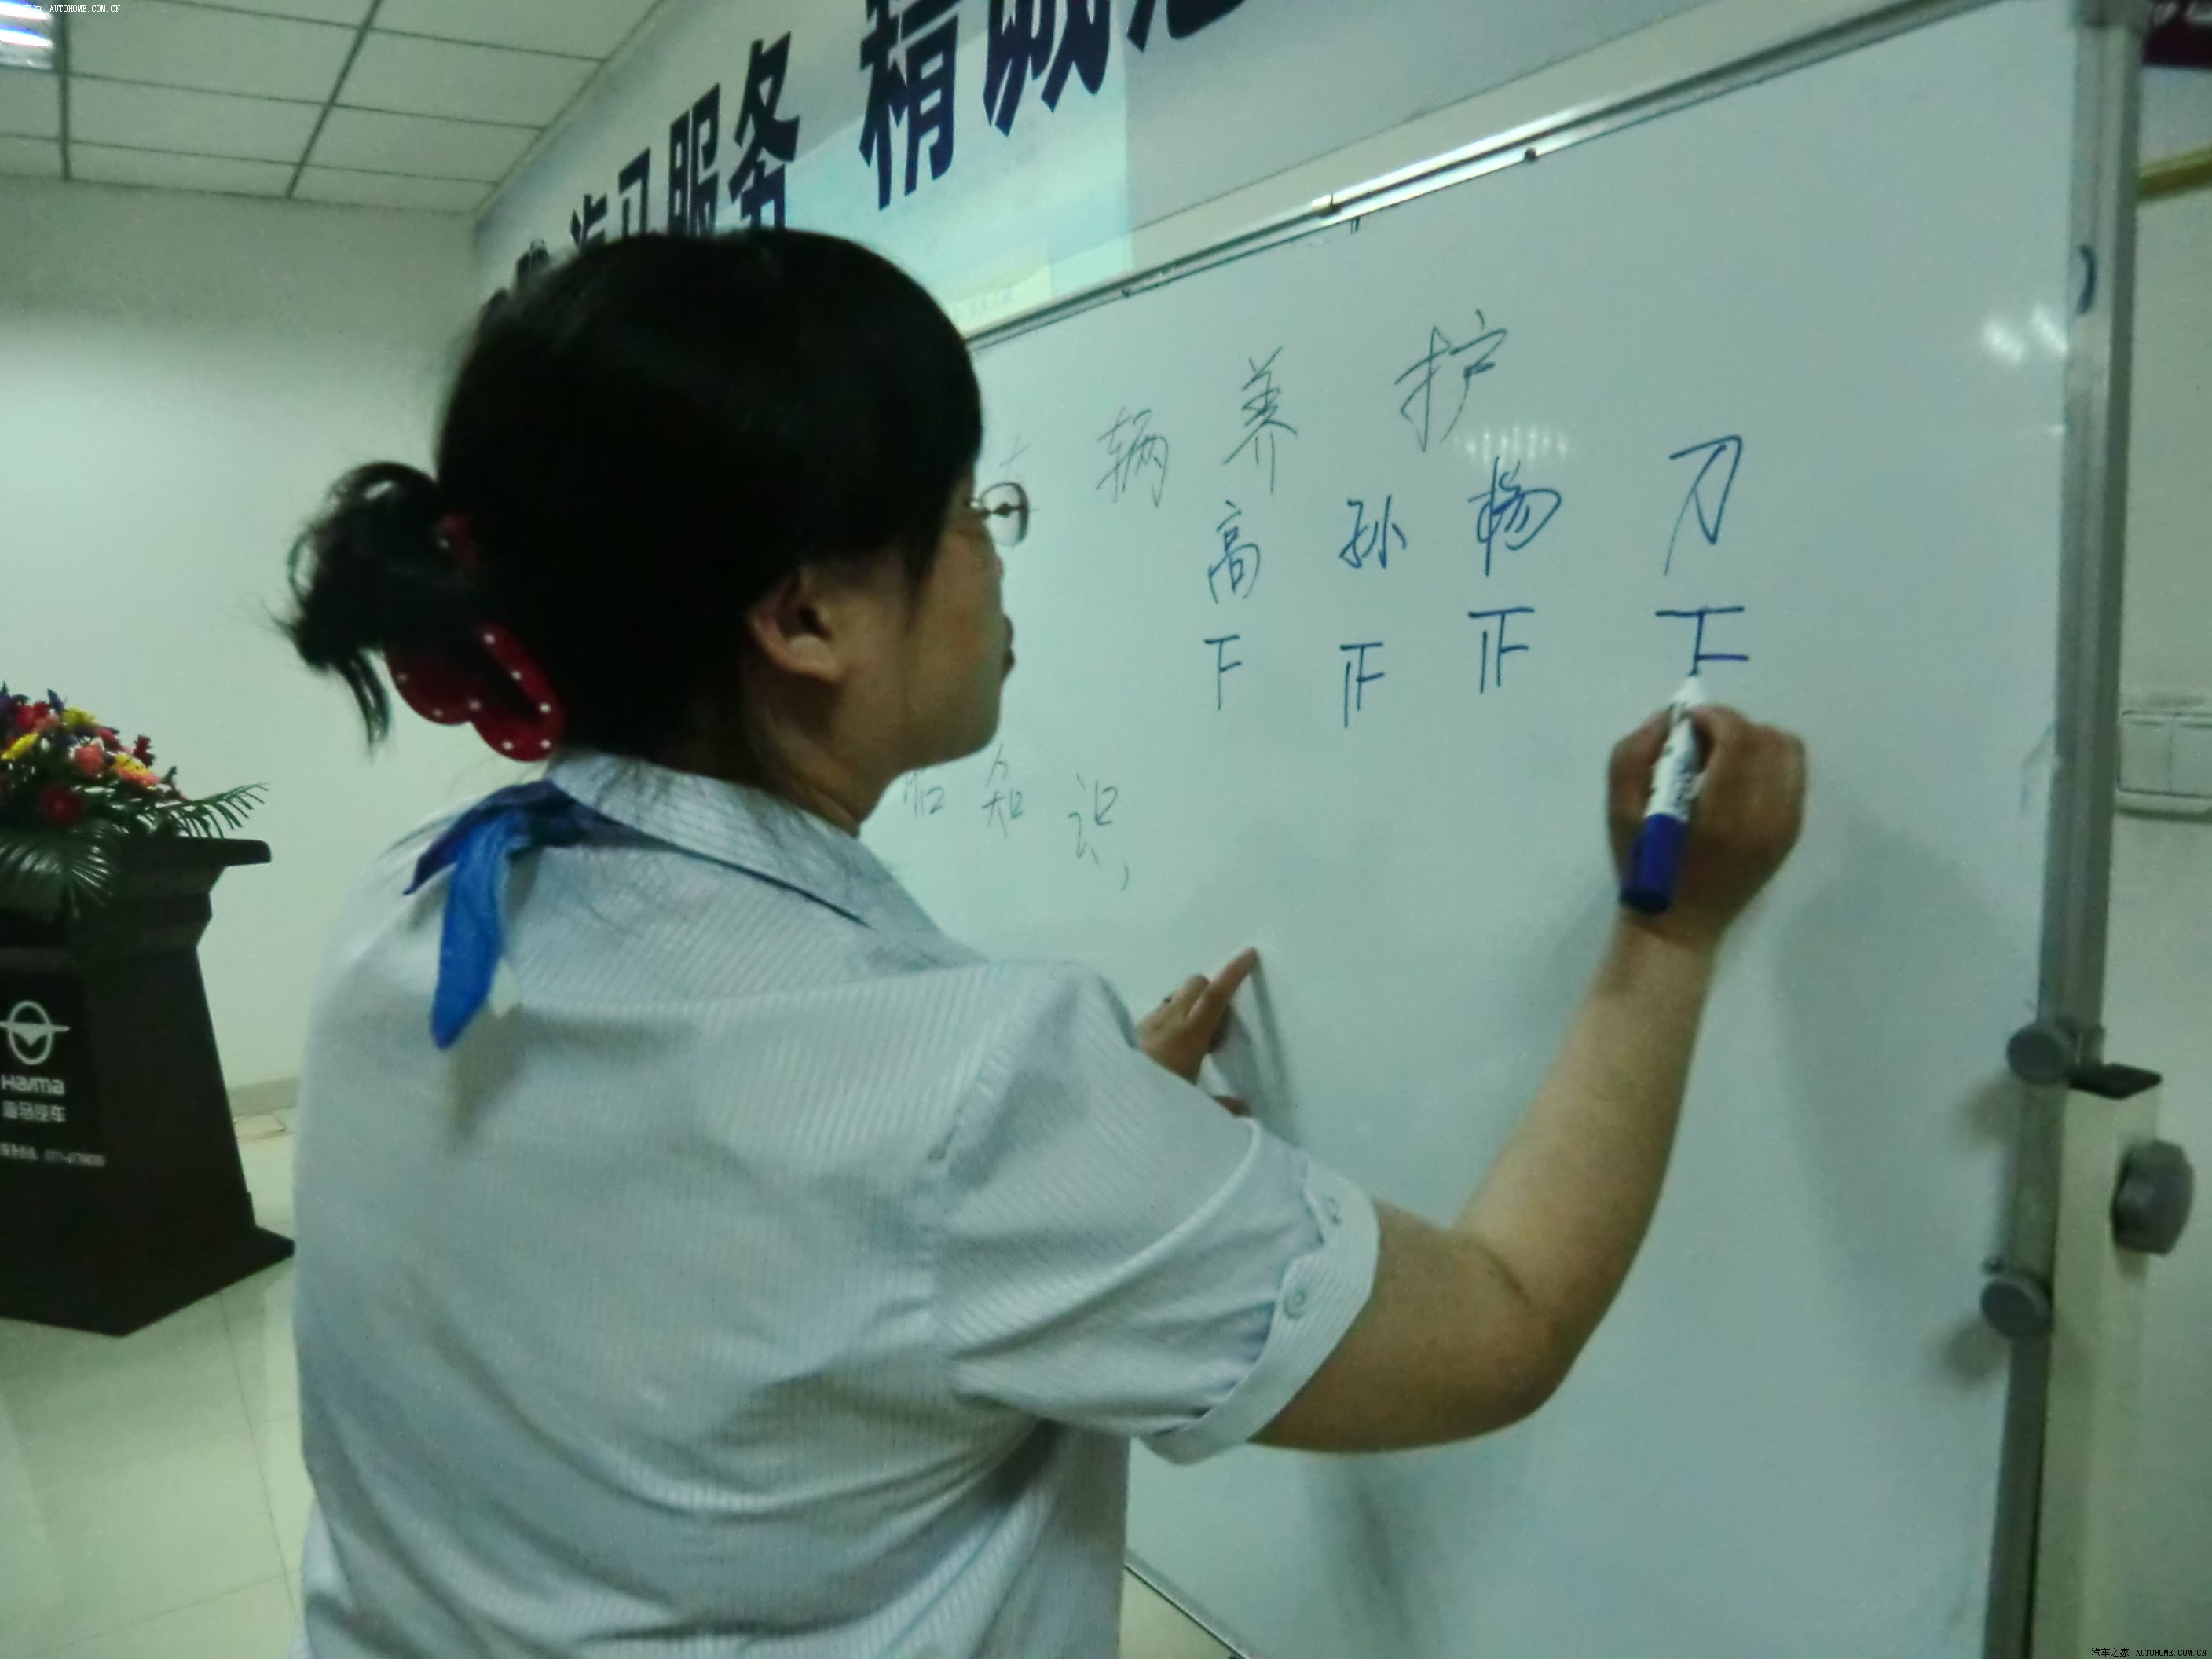 汽车之家 AUTOHOME.COM.CN
海马服务 精诚
车辆养护
高 孙 杨 刀
下 正 正 下
和知识,
Haima
海马汽车
汽车之家 AUTOHOME.COM.CN